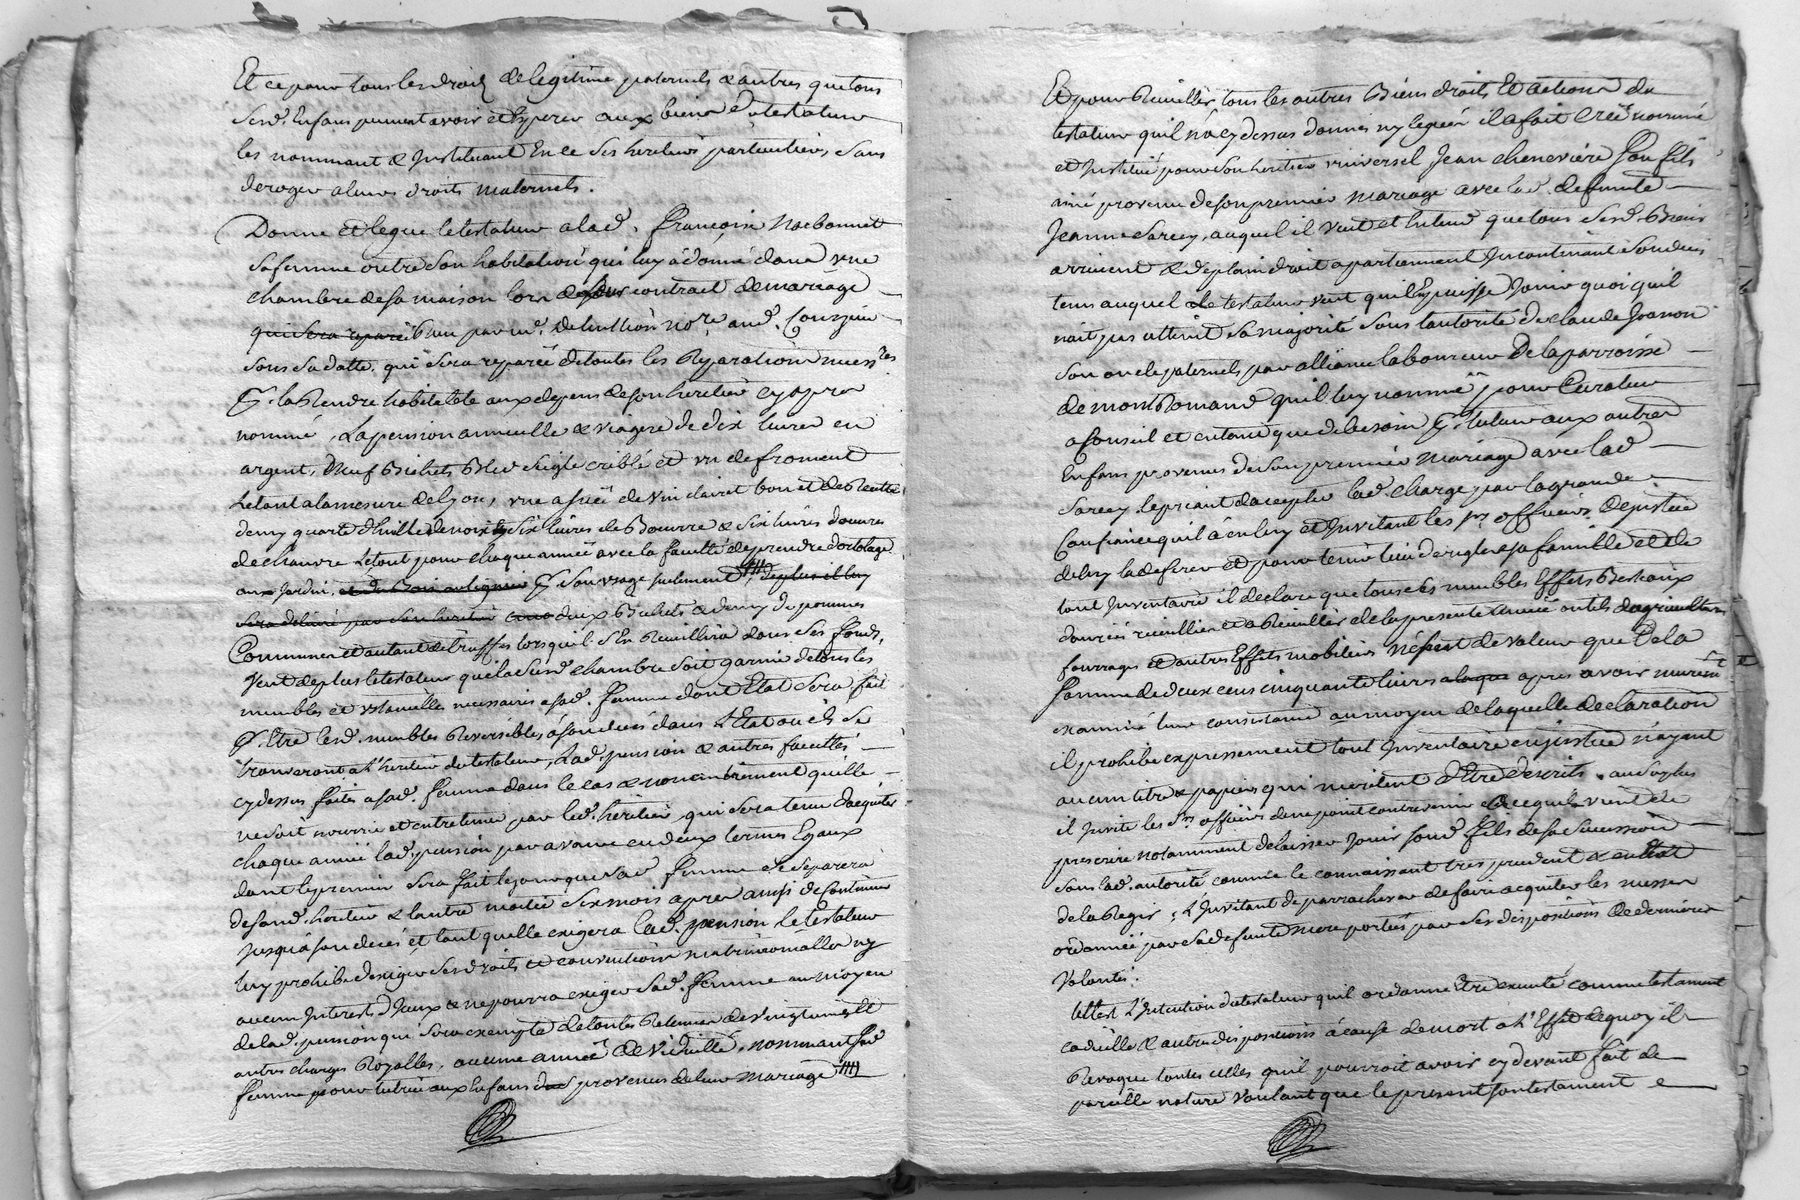 Et ce pour tous les droits de legitime paternels & autres que tous
sesd. Enfans peuvent avoir et Esperer aux biens du testateur
les nommant & Instituant En ce ses heritiers particuliers, sans
deroger aleurs droits maternels.
Donne et legue le testateur a lad. françoise Narbonnet
sa femme outre son habitation qui luy à donné dans une
chambre de sa maison lors de leur contract de mariage
qui sera reparée reçu par me. notre. aud. Courzieu
sous sa datte, qui sera reparée de toutes les Reparations necessres
pr. la Rendre habitable aux depens de son heritier cy apres
nommé, La pension annuelle & viagere de dix livres en
argent, Neuf Bichets Bled seigle criblé et un de froment
le tout a la mesure de Lyon, une asnée de vin clairet bon et de Recette
demy quarte d'huille de noix six livres de Beurre & six livres d'œuvres
de chanvre le tout pour chaque année avec la faculté de prendre d'ortolage
aux Jardins, et du Bois au ligneur pr. son usage seulement, de plus il luy
sera délivré par son heritier deux Bichets a demy de pommes
Communes et autant de truffes lorsqu'il s'En Recuillira dans ses fonds,
Veut de plus le testateur que la susd. chambre soit garnie de tous les
meubles et ustancilles necessaires a sad. femme dont Etat sera fait
pr. Etre lesd. meubles Reversibles, à son decès dans l'Etat où ils se
trouveront a l'heritier du testateur, Lad. pension & autres facultés
cy dessus faites a sad. femme dans le cas & non autrement qu'elle
ne soit nourrie et entretenue par led. heritier, qui sera tenu d'acquiter
chaque année lad. pension par avance en deux termes Egaux
dont le premier sera fait le jour que sad. femme se separera
de sond. heritier & l'autre moitié six mois apres ainsi de Continuer
jusqu'à son decès, et tant qu'elle exigera lad. pension le testateur
luy prohibe d'exiger ses droits et conventions matrimonialles ny
aucun Interest d'Iceux & ne pourra exiger sad. femme au moyen
de lad. pension qui sera exempte de toutes Retenues de vingtiemes et
autres charges Royalles, aucune année de viduité, nommant sad.
femme pour tutrice aux Enfans provenus de leur mariage
Et pour Recuillir tous les autres Biens droits Et actions du
testateur qu'il n'a cy dessus donnés ny legués il a fait Créé nommé
et Institué pour son heritier universel Jean chenevière son fils
ainé provenu de son premier mariage avec lad. defunte
Jeanne Sarcey, auquel il veut et Entend que tous sesd. Biens
arrivent & de plain droit apartiennent Incontinant son decès
tems auquel le testateur veut qu'il En puisse Jouir quoi qu'il
n'ait pas atteint sa majorité sous l'autorité de claude Joannon
son oncle paternels par alliance laboureur de la parroisse
de montRomand qu'il luy nomme pour Curateur
a Conseil et en tant que de besoin pr. tuteur aux autres
Enfans provenus de son premier mariage avec lad.
Sarcey le priant d'accepter lad. charge par la grande
Confiance qu'il à en luy et Invitant les srs. officiers de justice
de luy la deferer Et pour tenir lieu de regle a sa famille et de
tout Inventaire il declare que tous ses meubles Effets Bestiaux
danrées recuillies & a Recuillir de la presente année outils d'agriculture
fourrages et autres Effets mobiliers n'est de valeur que de la
somme de deux cens cinquante livres apres avoir murement
examiné leur consistance au moyen de laquelle declaration
il prohibe expressement tout Inventaire en justice n'ayant
aucun titre & papiers qui meritent d'Etre descrits, au surplus
il Invite les Srs. officiers de ne point contrevenir a ce qu'il vient de
prescrire notamment de laisser Jouir sond. fils de sa succession
sous lad. autorité comme le connaissant tres prudent & en Etat
de la Regir, L'Invitant de parrachever de faire acquiter les messes
ordonnées par sa defunte mere portées par ses dispositions de dernieres
Volontés.
tel est L'Intention du testateur qu'il ordonne Etre executé comme testament
codicille & autres dispositions à cause de mort a l'Effet de quoy il
Revoque toutes celles qu'il pourroit avoir cy devant fait de
pareille nature voulant que le present son testament